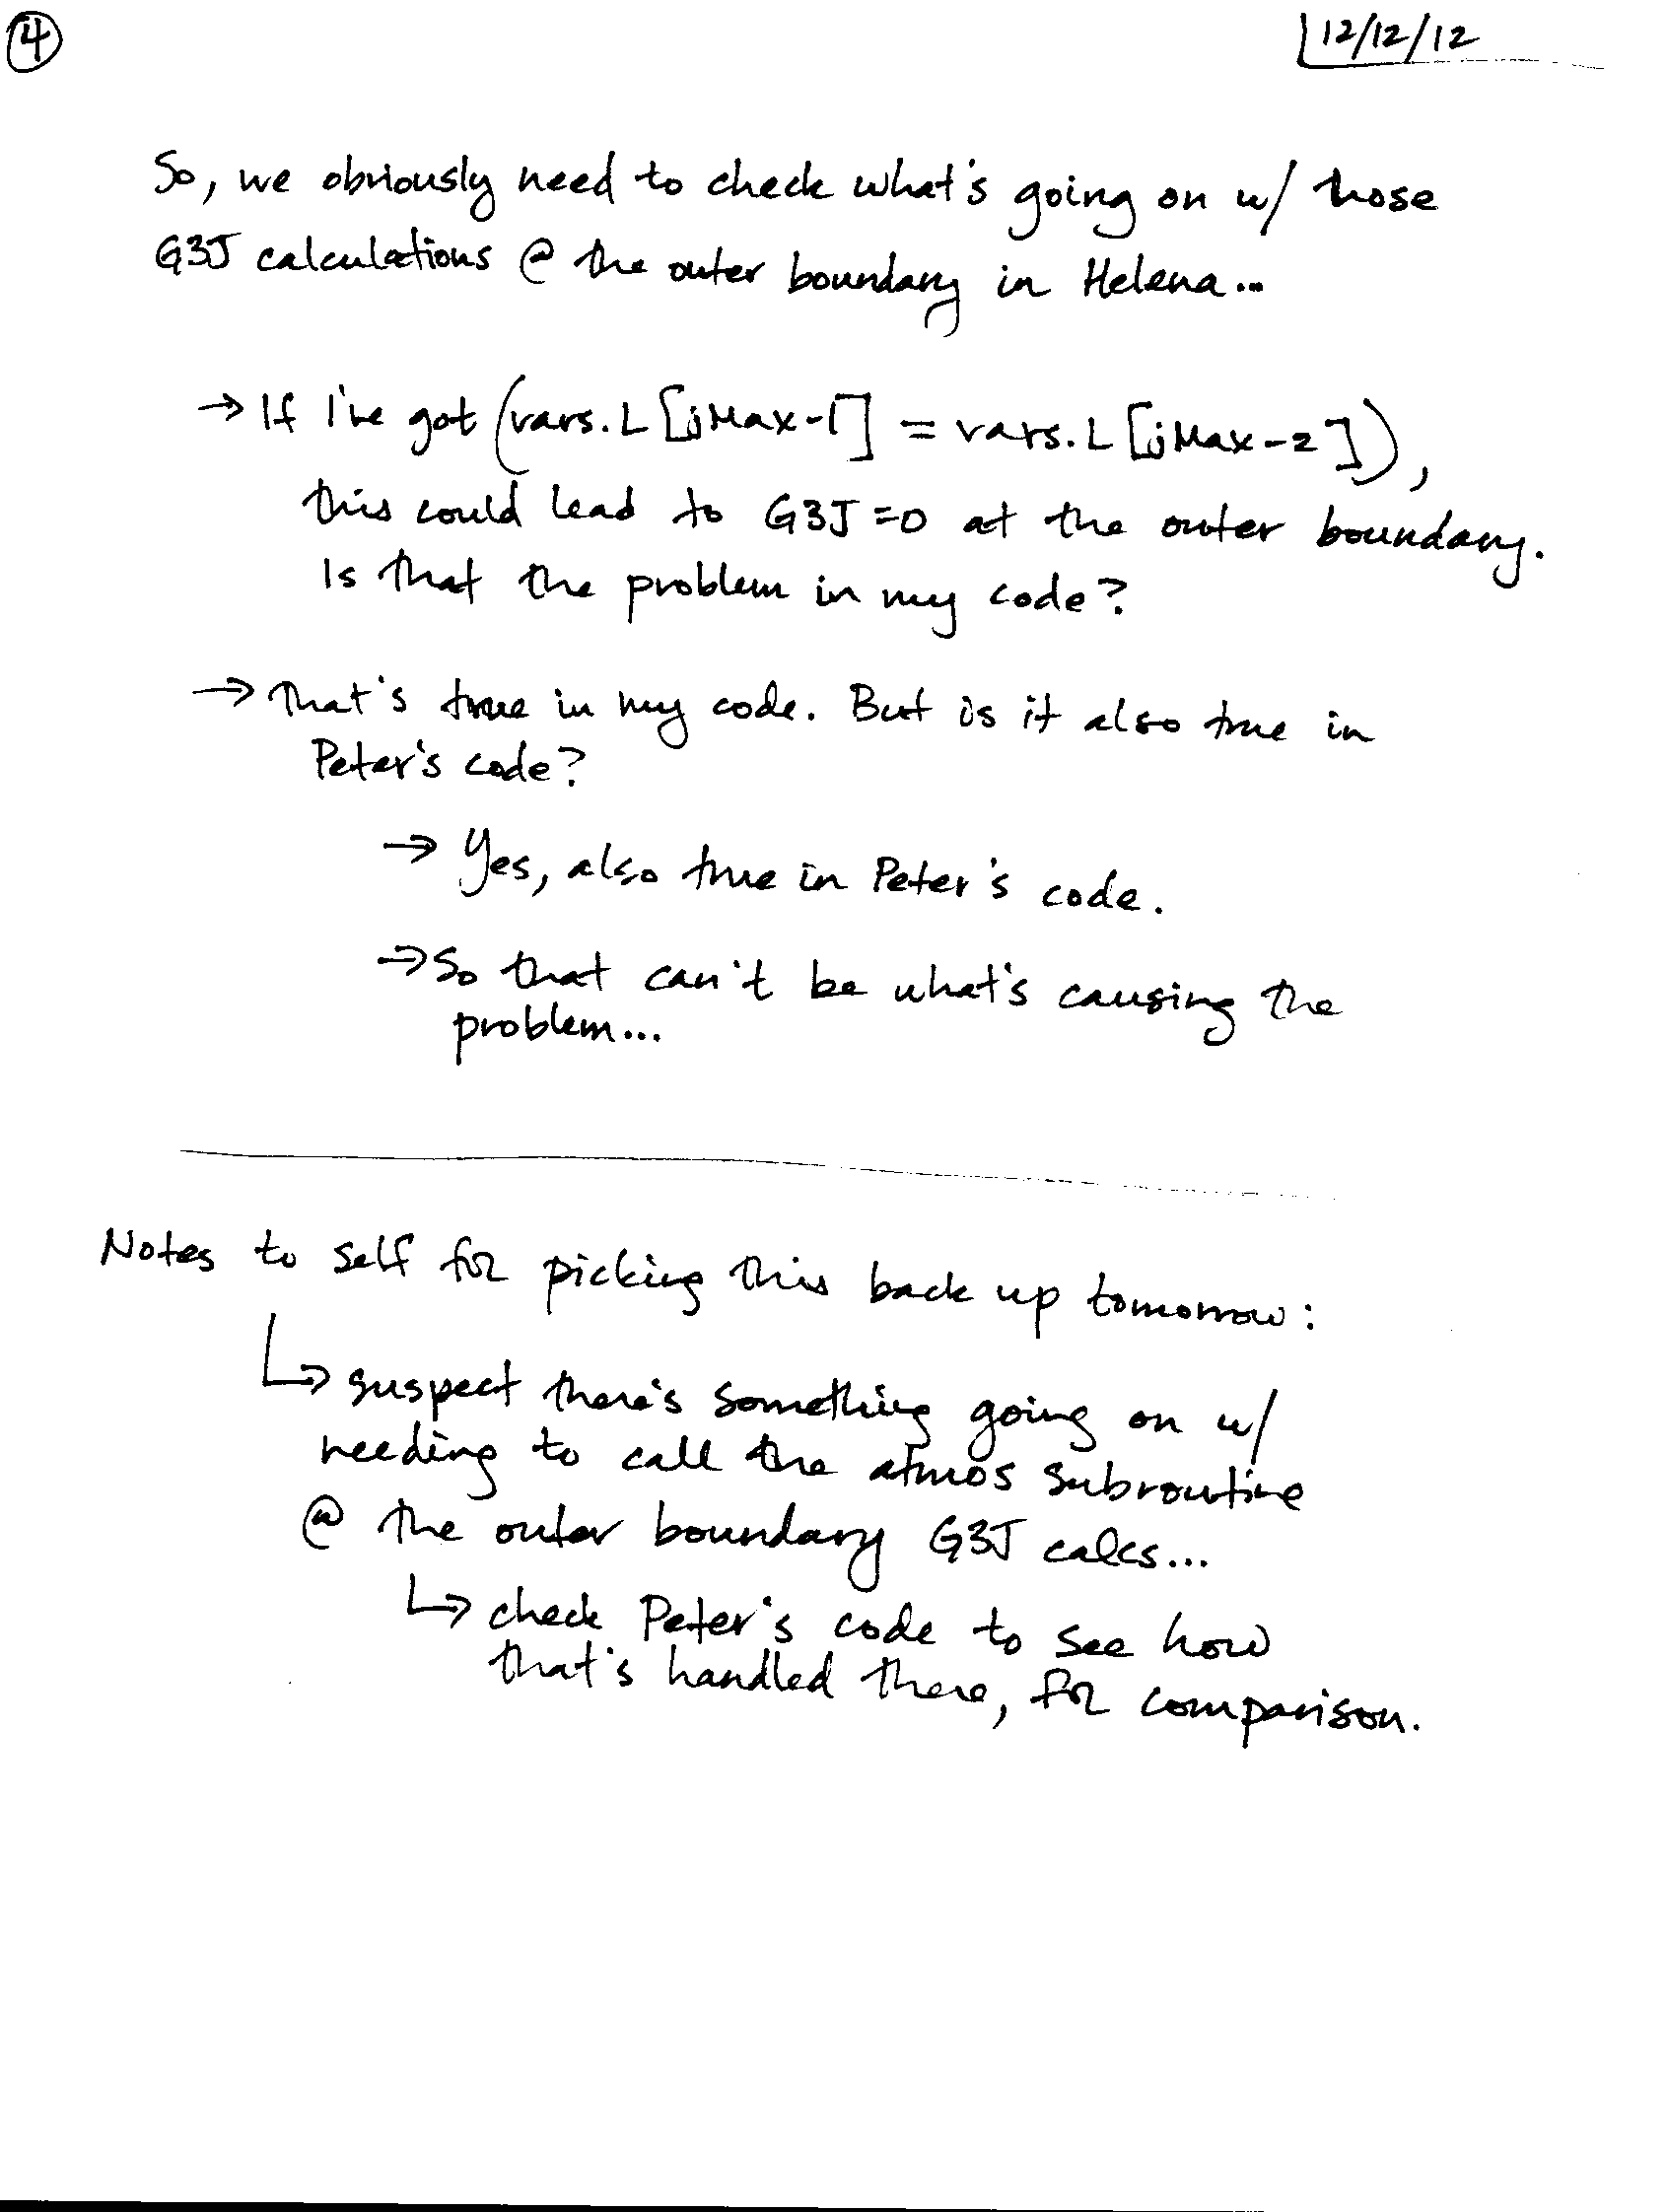 4
12/12/12
So, we obviously need to check what's going on w/ those
G3J calculations @ the outer boundary in Helena...
→ If I've got (vars.L[jMax-1] = vars.L[jMax-2]),
this could lead to G3J=0 at the outer boundary.
Is that the problem in my code?
→ That's true in my code. But is it also true in
Peter's code?
→ Yes, also true in Peter's code.
→ So that can't be what's causing the
problem...
Notes to self for picking this back up tomorrow:
↳ suspect there's something going on w/
needing to call the atmos subroutine
@ the outer boundary G3J calcs...
↳ check Peter's code to see how
that's handled there, for comparison.